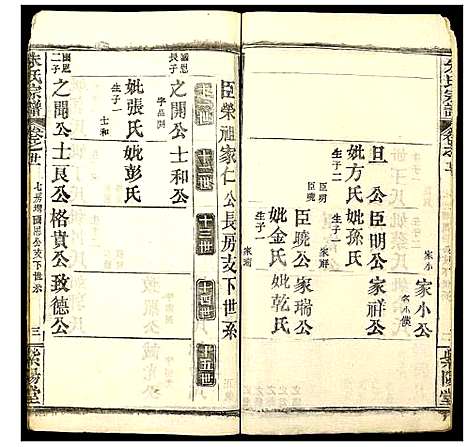 朱氏宗譜
卷之
二
紫陽堂
家小
家小公
名小儀
旦公
臣明公
家祥公
生子二
臣明
臣曉
妣方氏
生子二
妣孫氏
家祥
臣曉公
家瑞公
生子一
妣金氏
生子一
妣乾氏
家瑞
臣榮祖家仁公長房支下世系
十一世
十二世
十三世
十四世
十五世
國恩長子
之開公
字品閑
士和公
生子一
妣張氏
妣彭氏
士和
國恩二子
之聞公
士良公
格貴公
致德公
朱氏宗譜
卷之
世
七房增國恩公支下世系
三
紫陽堂